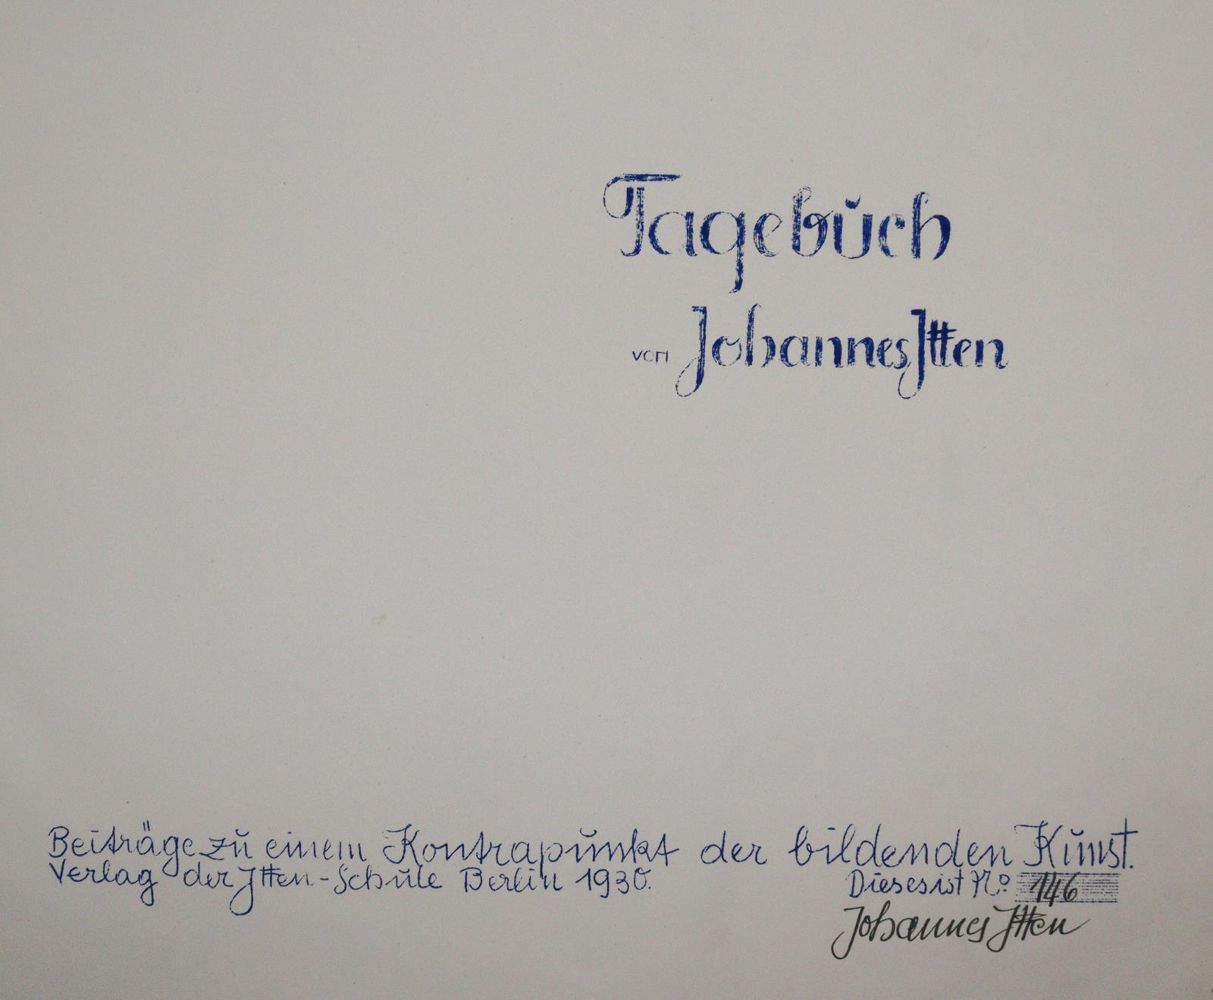 Tagebuch
von Johannes Itten
Beiträge zu einem Kontrapunkt der bildenden Kunst.
Verlag der Itten-Schule Berlin 1930.
Dieses ist No 146
Johannes Itten